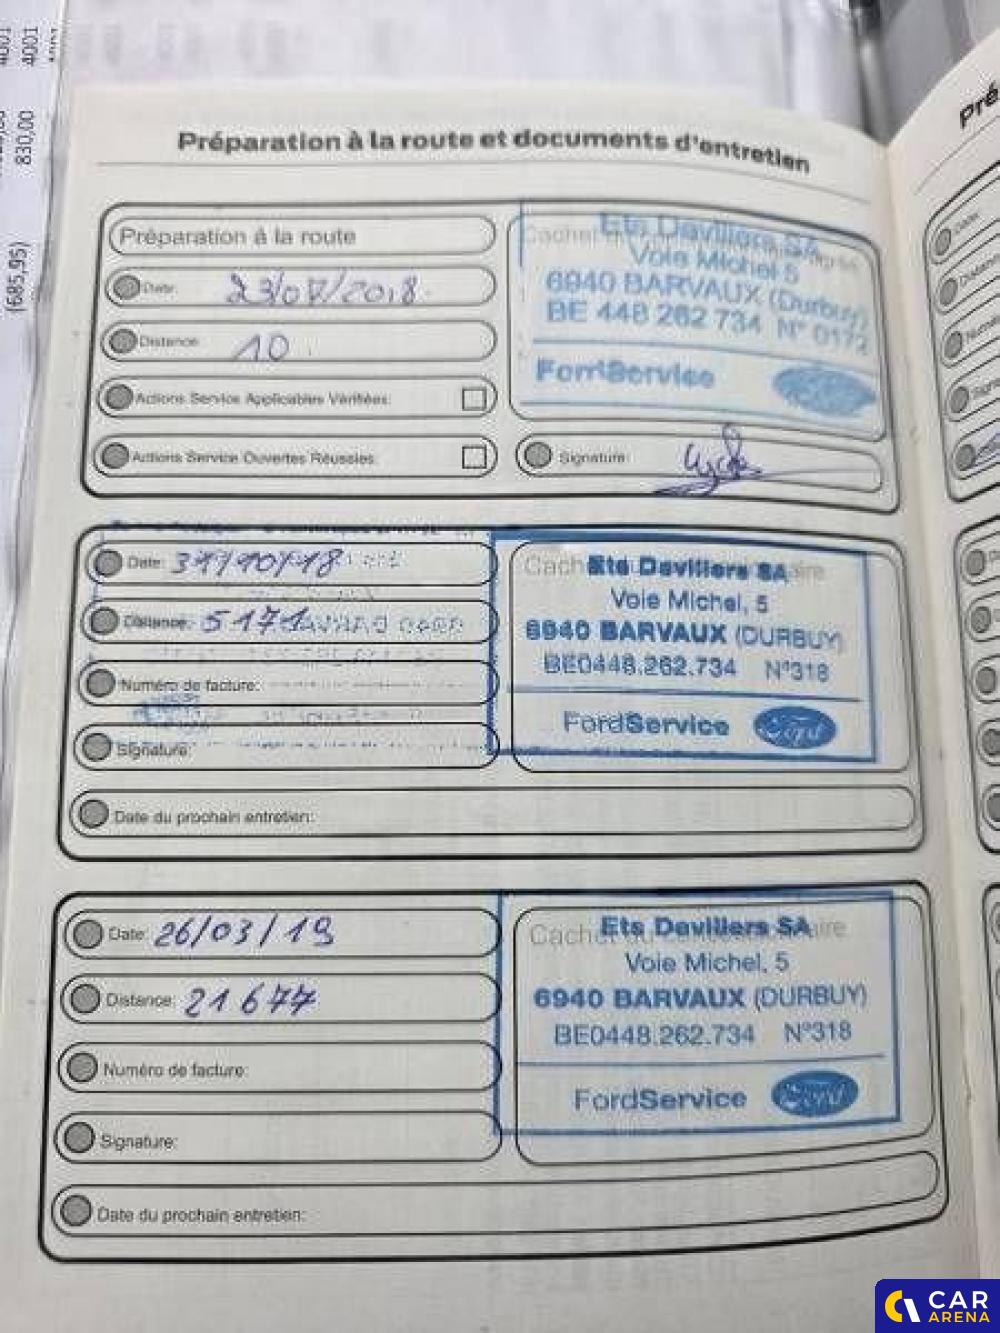 4001
4001
830,00
(685,95)
Pré
Préparation à la route et documents d'entretien
Préparation à la route
Date: 23/07/2018
Distance: 10
Actions Service Applicables Vérifiées:
Actions Service Ouvertes Réussies:
Cachet du
Ets Devillers SA
Voie Michel 5
6940 BARVAUX (Durbuy)
BE 448 262 734 N° 0172
FordService
Signature:
Date: 31/10/18
Distance: 5171
Numéro de facture:
Signature:
Ets Devillers SA
Voie Michel, 5
6940 BARVAUX (DURBUY)
BE0448.262.734 N°318
FordService Ford
Date du prochain entretien:
Date: 26/03/19
Distance: 21677
Numéro de facture:
Signature:
Cachet du concessionnaire
Ets Devillers SA
Voie Michel, 5
6940 BARVAUX (DURBUY)
BE0448.262.734 N°318
FordService Ford
Date du prochain entretien:
CAR
ARENA